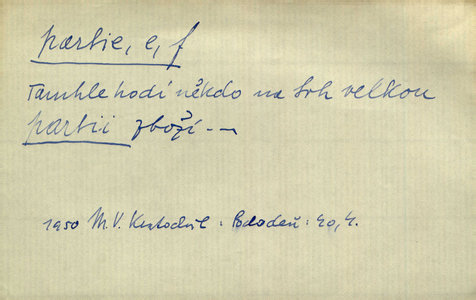 partie, e, f
Tamhle hodí někdo na trh velkou
partii zboží --
1950 M.V. Kratochvíl : Bloděň : 20, 4.